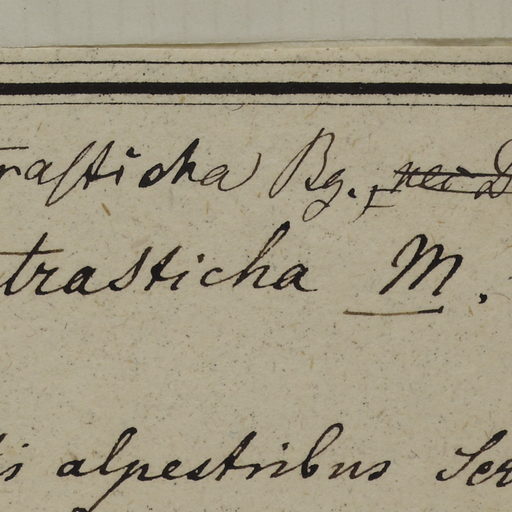 traſticha Bg.,
trasticha M.
is alpestribus Ser